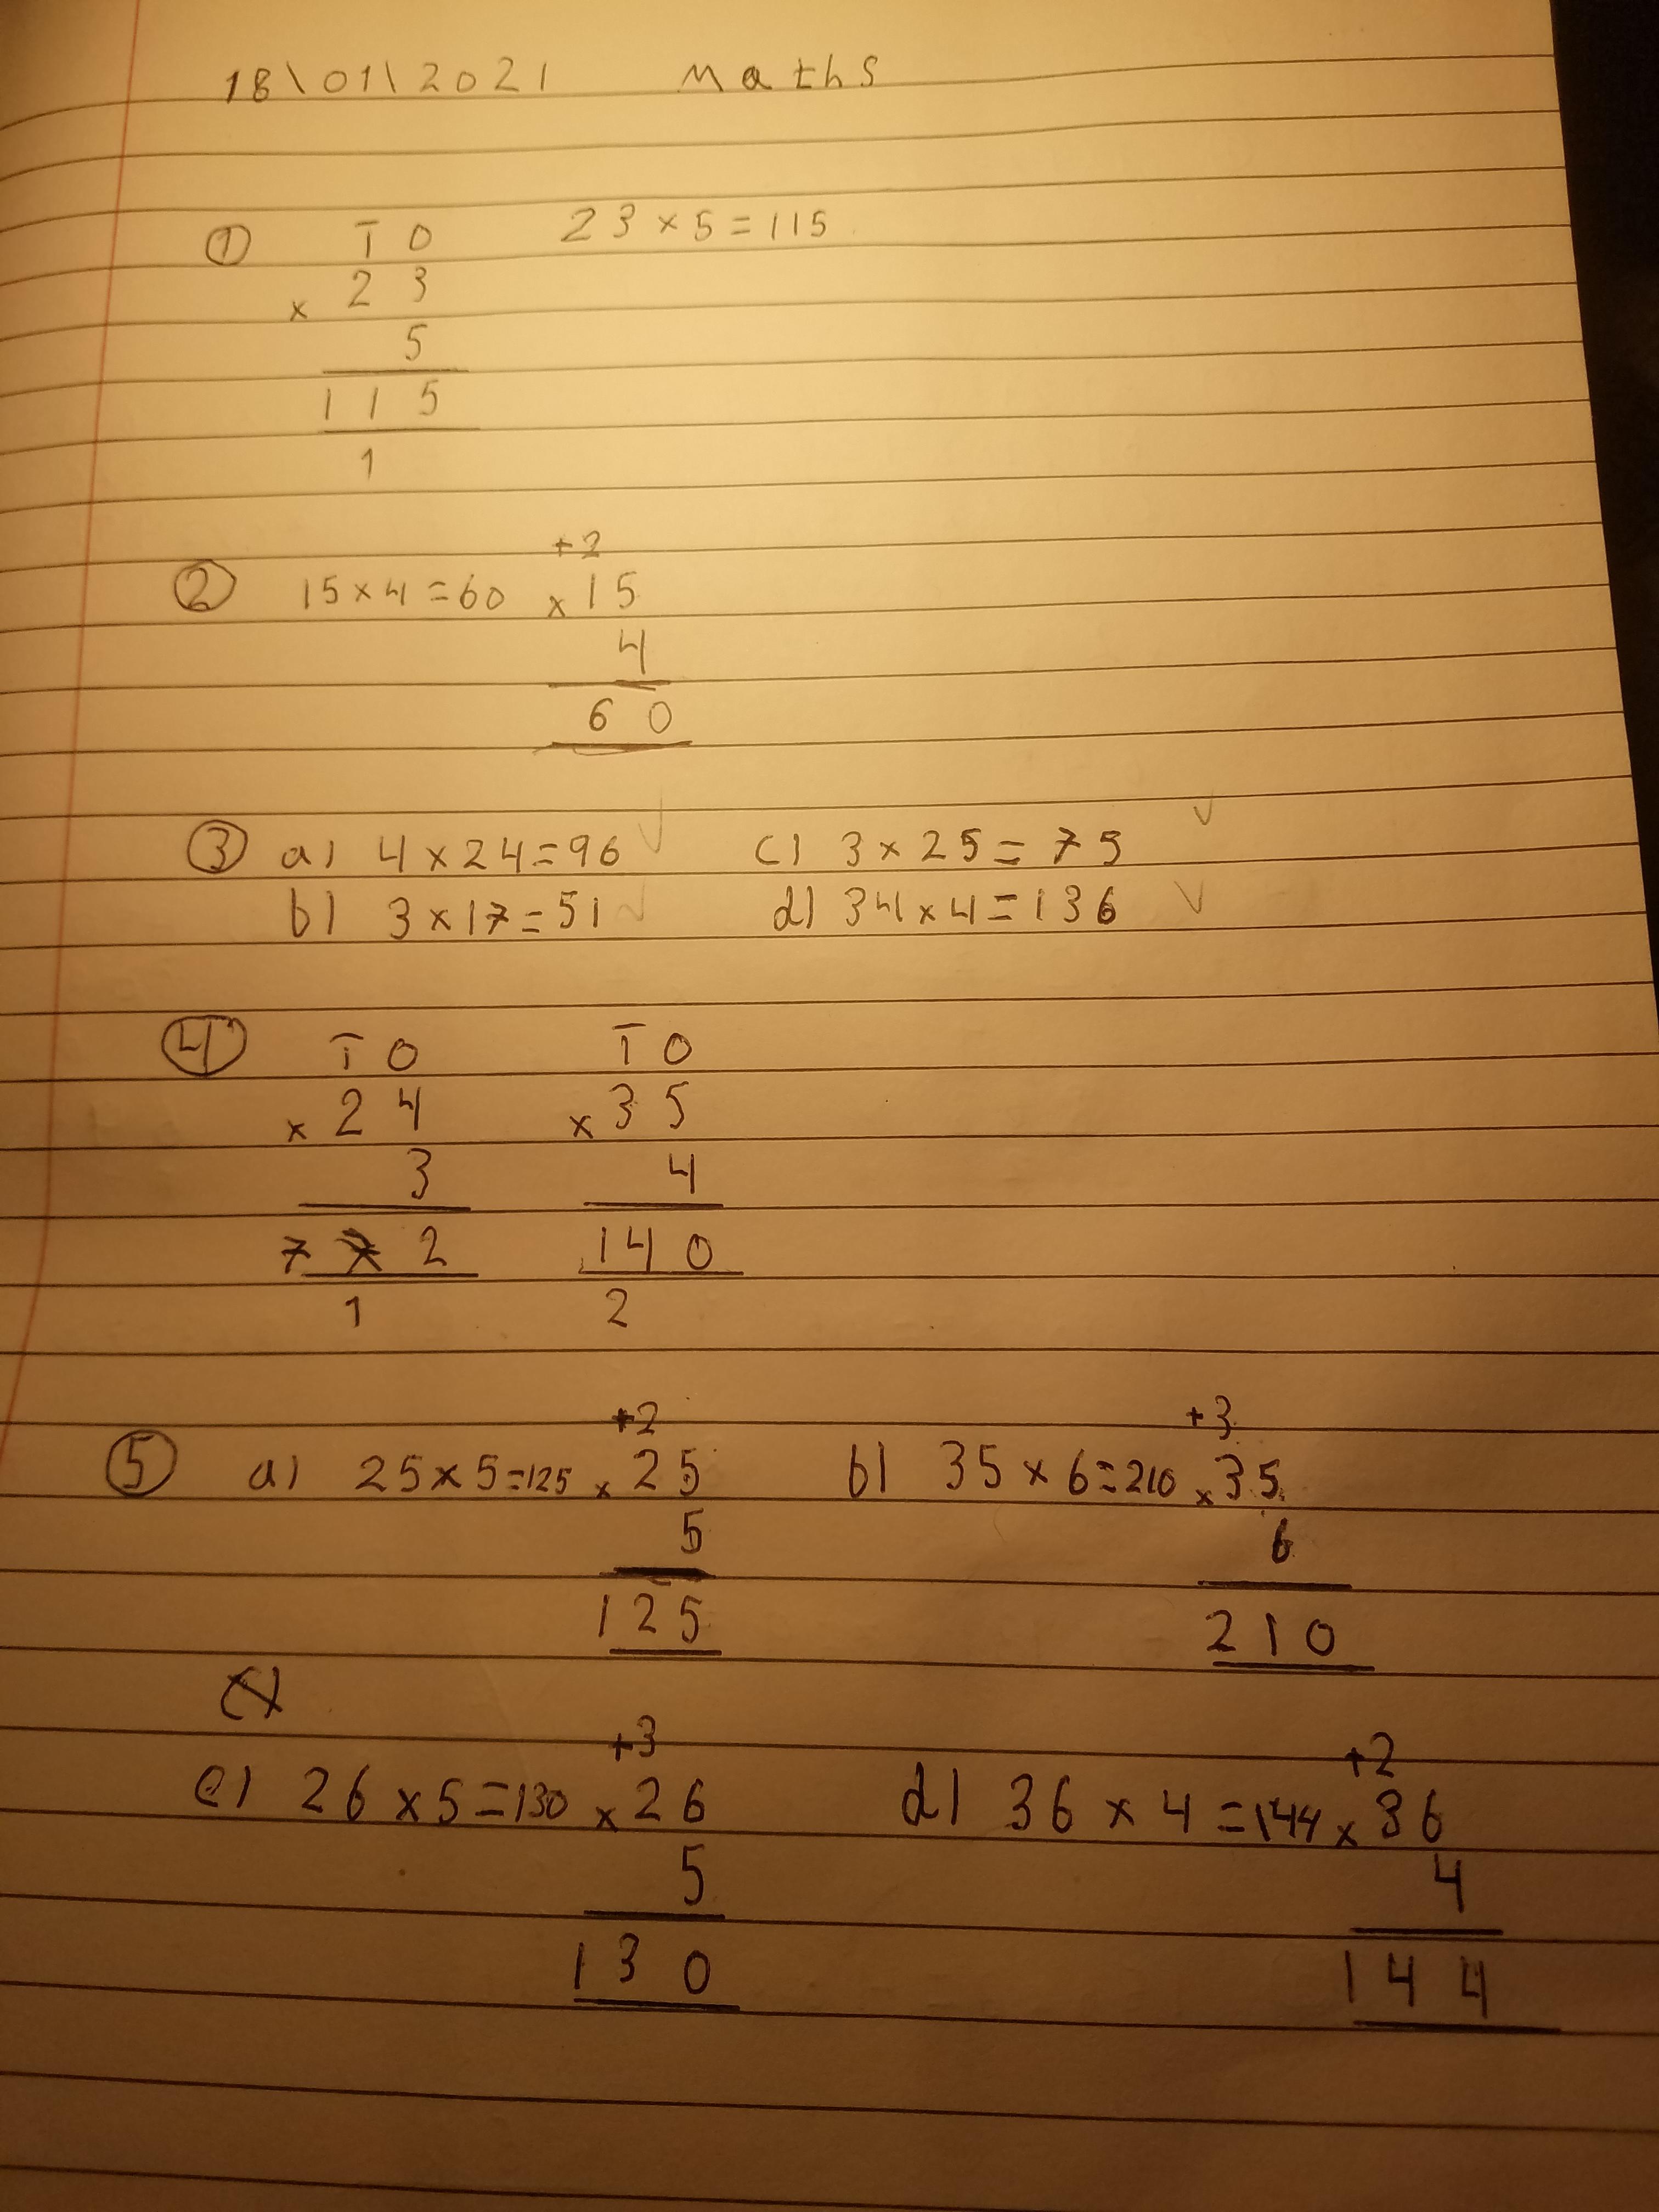 18\01\2021 Maths
① T O 23×5=115
× 2 3
5
1 1 5
1
+2
② 15×4=60 × 15
4
6 0
③ a) 4×24=96 ✓ c) 3×25=75 ✓
b) 3×17=51 ✓ d) 34×4=136 ✓
④ T O T O
× 2 4 × 3 5
3 4
7 2 1 4 0
1 2
+2 +3
⑤ a) 25×5=125 × 25 b) 35×6=210 × 35
5 6
1 2 5 2 1 0
+3 +2
c) 26×5=130 × 26 d) 36×4=144 × 36
5 4
1 3 0 1 4 4